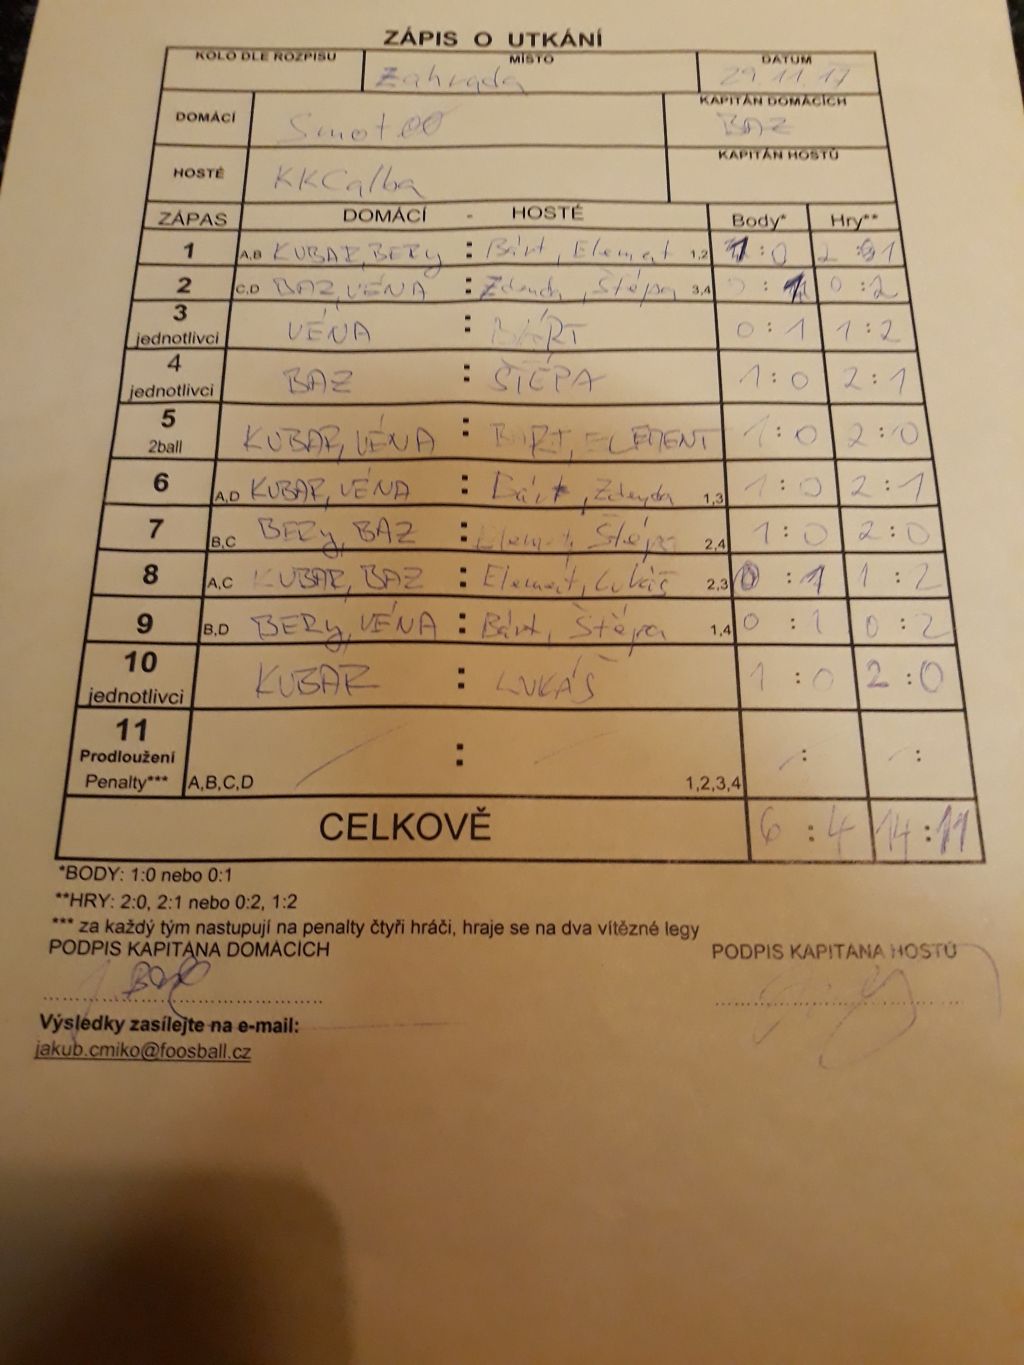 ZÁPIS O UTKÁNÍ
KOLO DLE ROZPISU MÍSTO DATUM
Zahrada 29.11.17
DOMÁCÍ KAPITÁN DOMÁCÍCH
Smot00 BAZ
HOSTÉ KAPITÁN HOSTŮ
KKCalba
ZÁPAS DOMÁCÍ - HOSTÉ Body* Hry**
1 A,B KUBAR, BERy : Bárt, Element 1,2 1:0 2:1
2 C,D BAZ, VÉNA : Zdenda, Štěpa 3,4 0:1 0:2
3 jednotlivci VÉNA : BÁRT 0:1 1:2
4 jednotlivci BAZ : ŠTĚPA 1:0 2:1
5 2ball KUBAR, VÉNA : BÁRT, ELEMENT 1:0 2:0
6 A,D KUBAR, VÉNA : Bárt, Zdenda 1,3 1:0 2:1
7 B,C BERy, BAZ : Element, Štěpa 2,4 1:0 2:0
8 A,C KUBAR, BAZ : Element, Lukáš 2,3 0:1 1:2
9 B,D BERy, VÉNA : Bárt, Štěpa 1,4 0:1 0:2
10 jednotlivci KUBAR : LUKÁŠ 1:0 2:0
11 Prodloužení Penalty*** A,B,C,D / : / 1,2,3,4 / : / :
CELKOVĚ 6:4 14:11
*BODY: 1:0 nebo 0:1
**HRY: 2:0, 2:1 nebo 0:2, 1:2
*** za každý tým nastupují na penalty čtyři hráči, hraje se na dva vítězné legy
PODPIS KAPITÁNA DOMÁCÍCH PODPIS KAPITÁNA HOSTŮ
Výsledky zasílejte na e-mail:
jakub.cmiko@foosball.cz